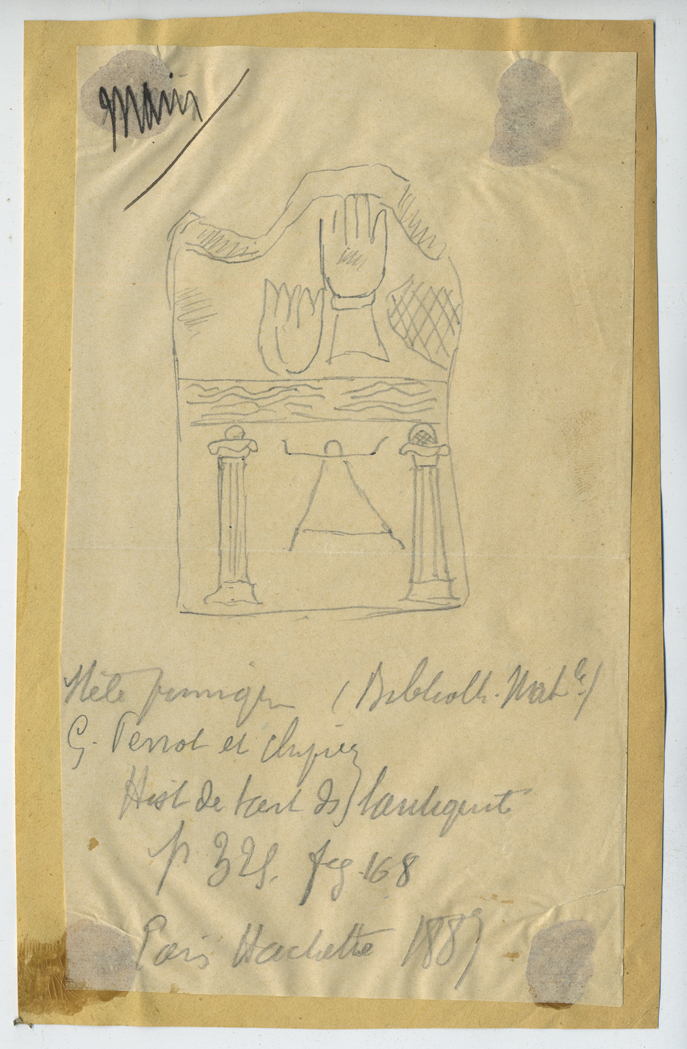 Main
Stèle punique (Biblioth. Natle)
G. Perrot et Chipiez
Hist de l'art ds l'antiquité
p. 325. fig. 168
Paris Hachette